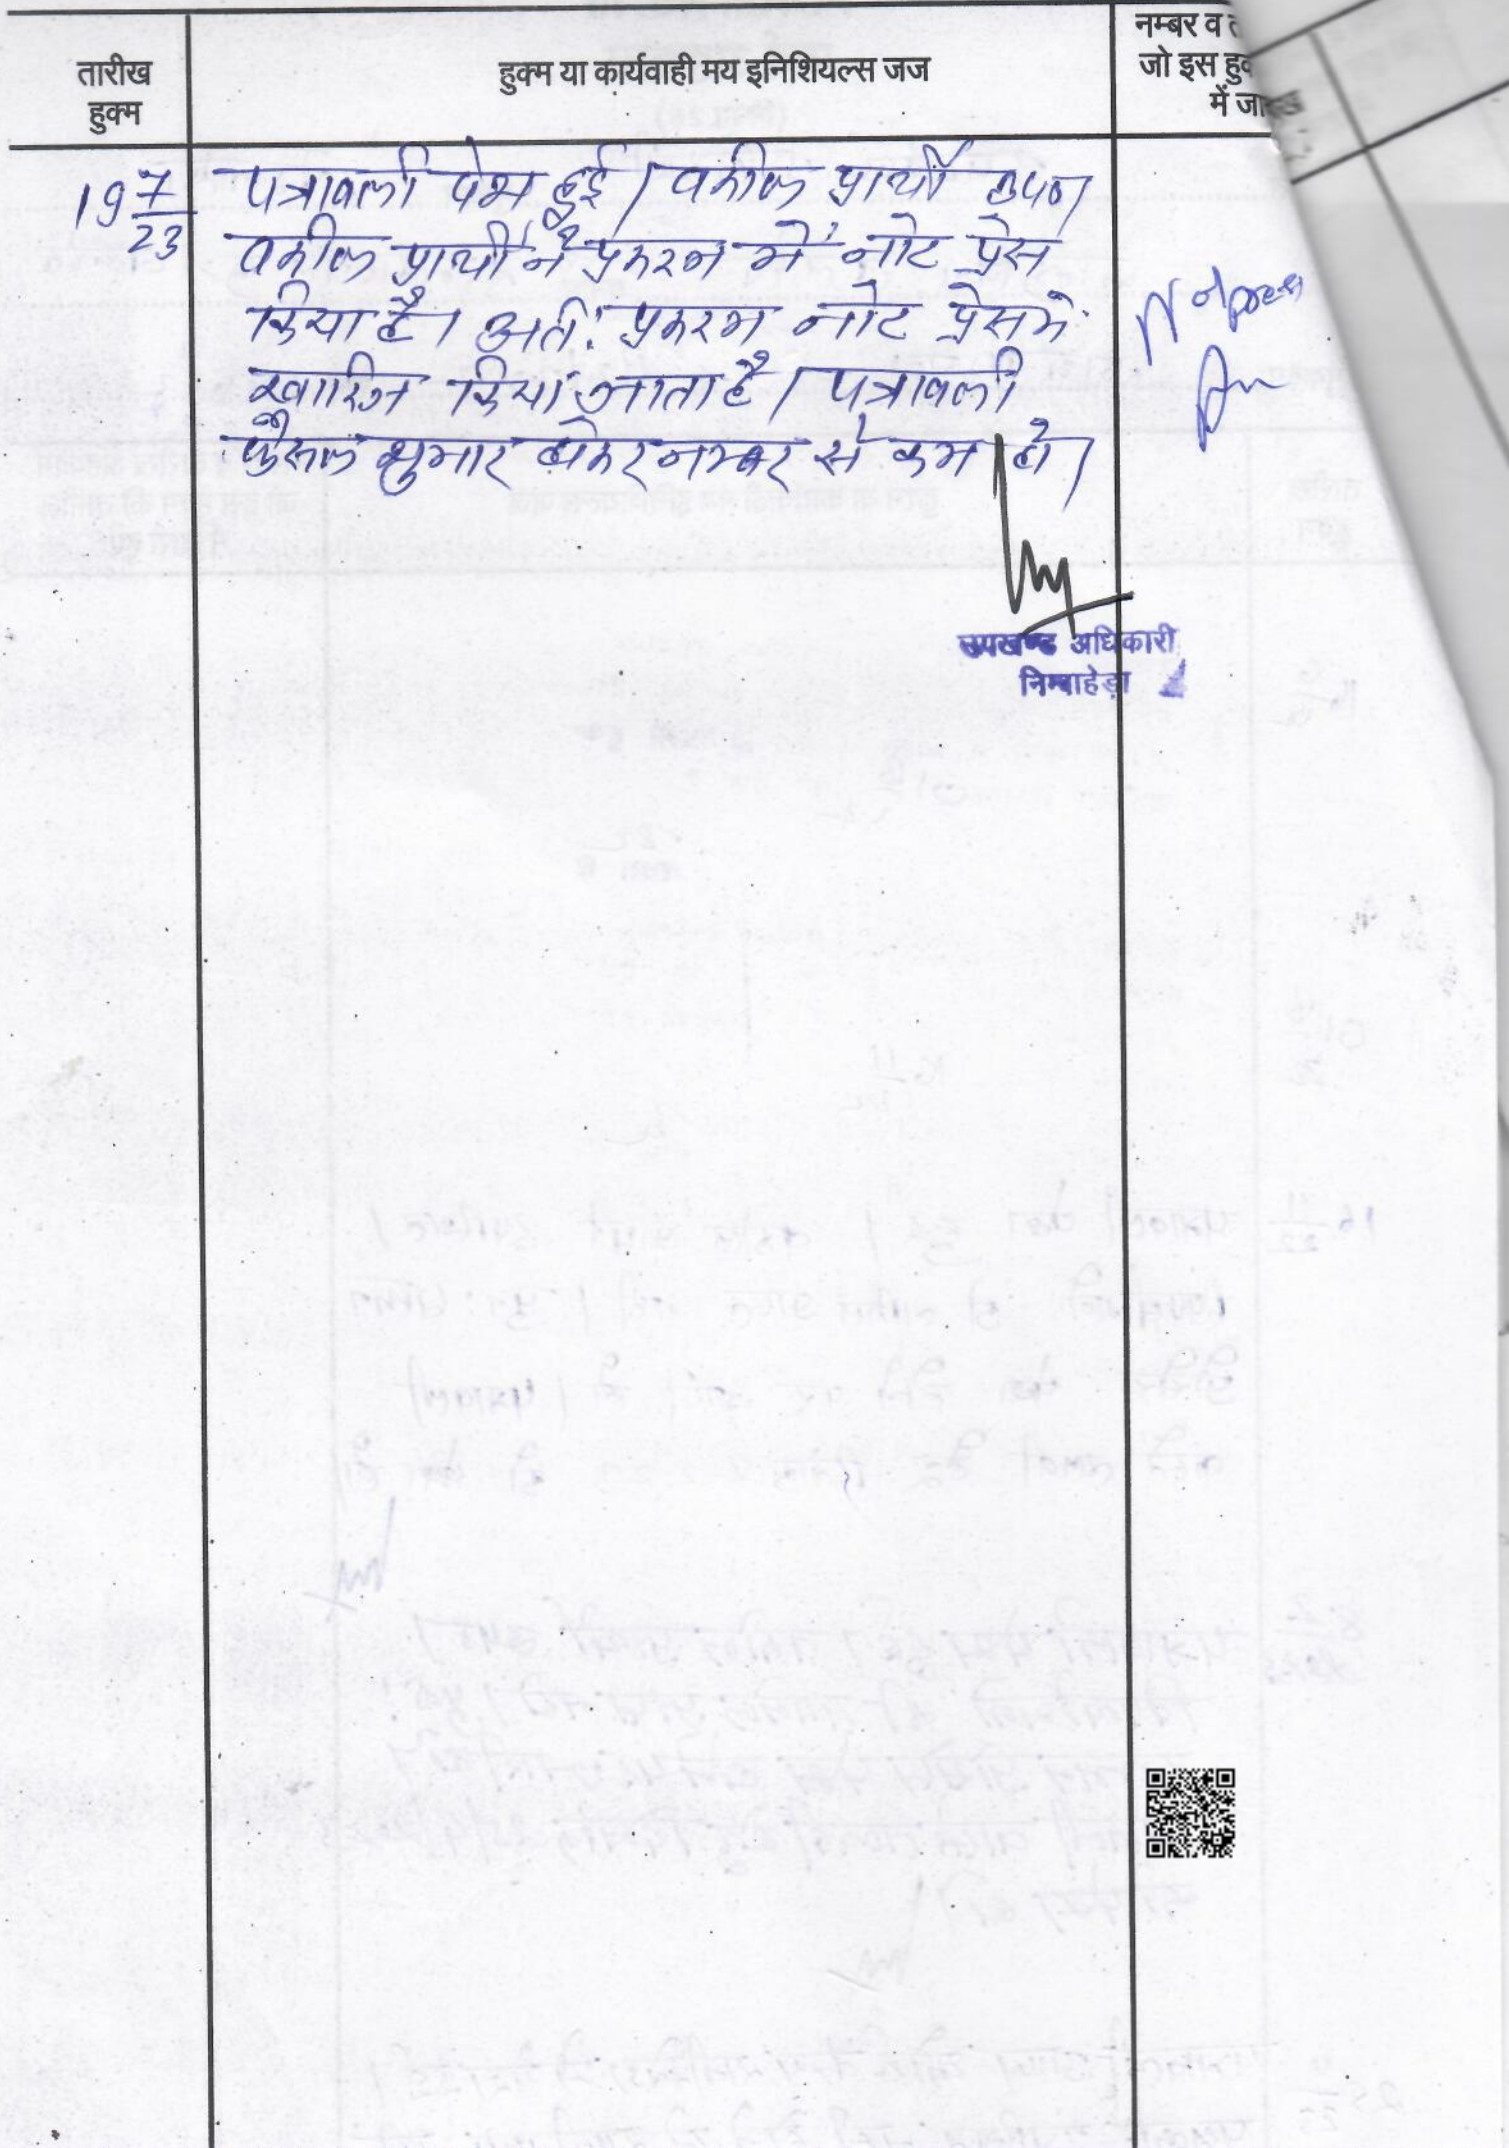 तारीख
हुक्म
हुक्म या कार्यवाही मय इनिशियल्स जज
नम्बर व
जो इस
में
19 7/23
पत्रावली पेश हुई। वकील प्रार्थी उप०।
वकील प्रार्थी ने प्रकरण में नोट प्रेस
किया है। अतः प्रकरण नोट प्रेस में
खारिज किया जाता है। पत्रावली
फैसल शुमार होकर नम्बर से कम हो।
Not press
उपखण्ड अधिकारी
निम्बाहेड़ा